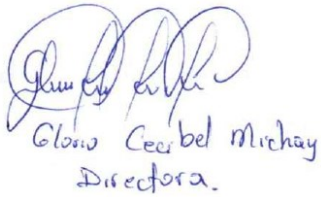 Gloria Cecibel Michay
Directora.